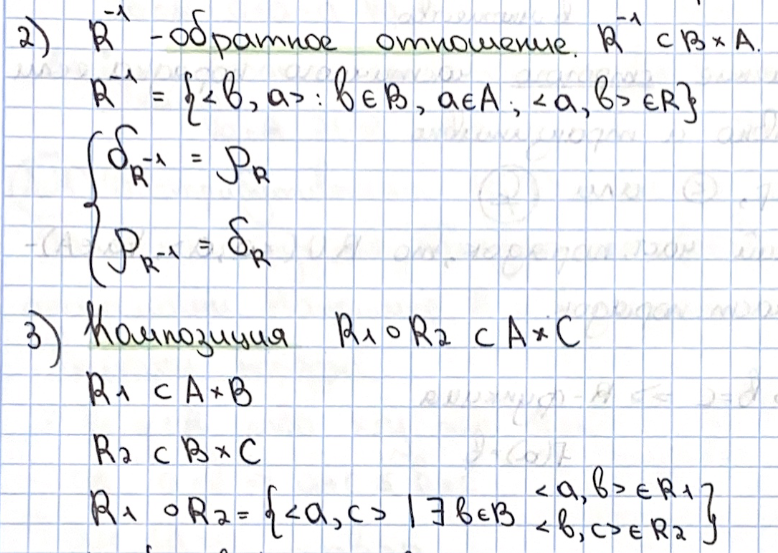 2) R⁻¹ - обратное отношение. R⁻¹ ⊂ B × A.
R⁻¹ = {<b, a> : b ∈ B, a ∈ A, <a, b> ∈ R}
{ δ_R⁻¹ = ρ_R
ρ_R⁻¹ = δ_R
3) Композиция R₁ ∘ R₂ ⊂ A × C
R₁ ⊂ A × B
R₂ ⊂ B × C
R₁ ∘ R₂ = {<a, c> | ∃ b ∈ B <a, b> ∈ R₁ <b, c> ∈ R₂}